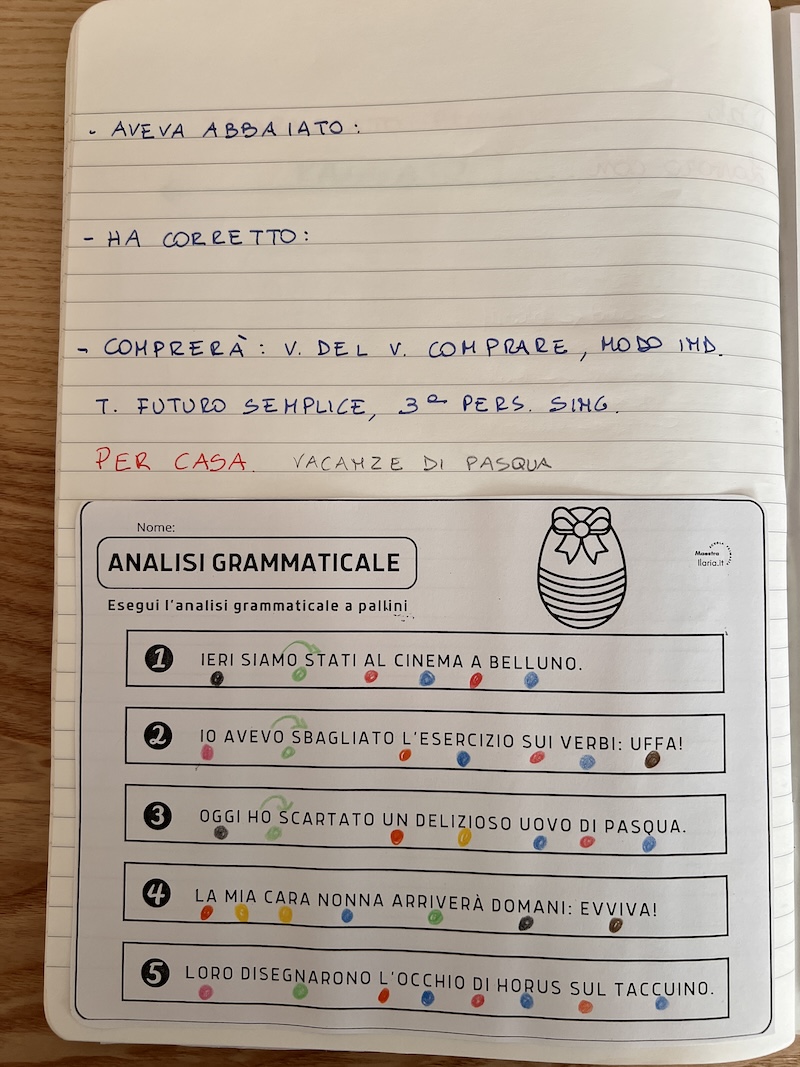 - AVEVA ABBAIATO:
- HA CORRETTO:
- COMPRERÀ: V. DEL V. COMPRARE, MODO IND.
T. FUTURO SEMPLICE, 3ª PERS. SING.
PER CASA. VACANZE DI PASQUA
Nome:
ANALISI GRAMMATICALE
Maestra
Ilaria.it
Esegui l'analisi grammaticale a pallini
1 IERI SIAMO STATI AL CINEMA A BELLUNO.
2 IO AVEVO SBAGLIATO L'ESERCIZIO SUI VERBI: UFFA!
3 OGGI HO SCARTATO UN DELIZIOSO UOVO DI PASQUA.
4 LA MIA CARA NONNA ARRIVERÀ DOMANI: EVVIVA!
5 LORO DISEGNARONO L'OCCHIO DI HORUS SUL TACCUINO.